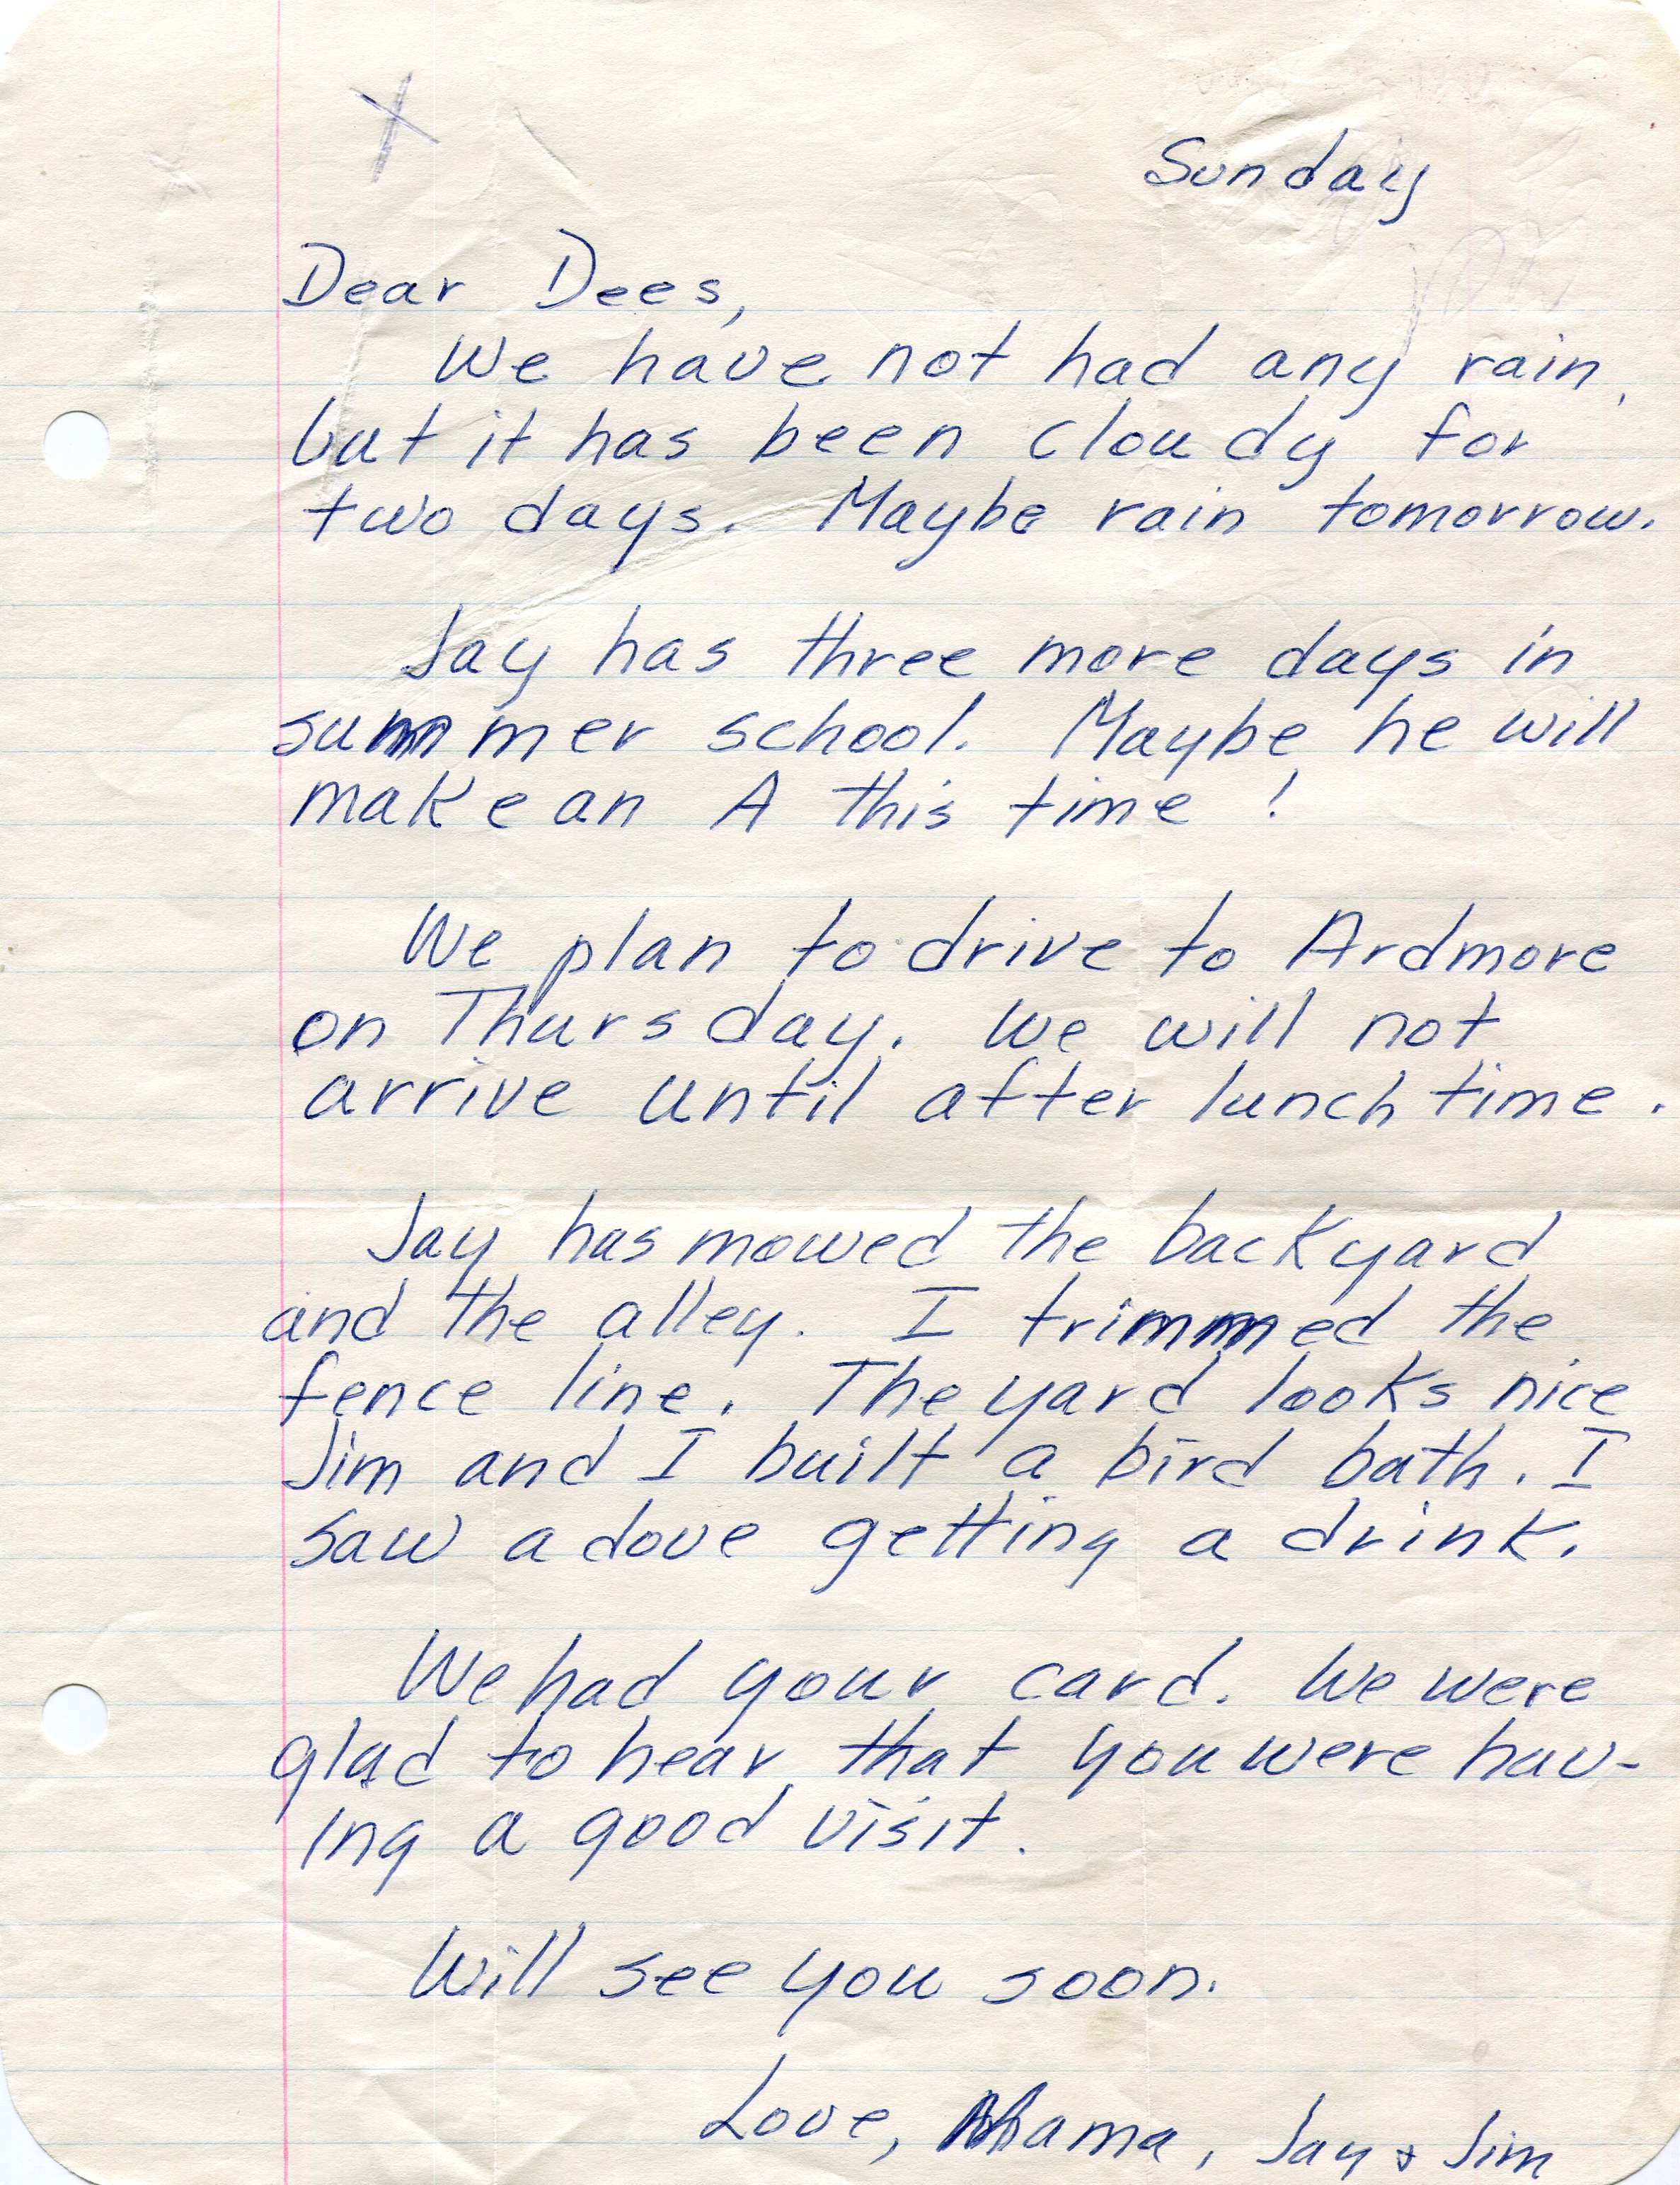 X
Sunday
Dear Dees,
We have not had any rain,
but it has been cloudy for
two days. Maybe rain tomorrow.
Jay has three more days in
summer school. Maybe he will
make an A this time!
We plan to drive to Ardmore
on Thursday. We will not
arrive until after lunch time.
Jay has mowed the backyard
and the alley. I trimmed the
fence line. The yard looks nice
Jim and I built a bird bath. I
saw a dove getting a drink.
We had your card. We were
glad to hear that you were hav-
ing a good visit.
Will see you soon.
Love, Mama, Jay & Jim